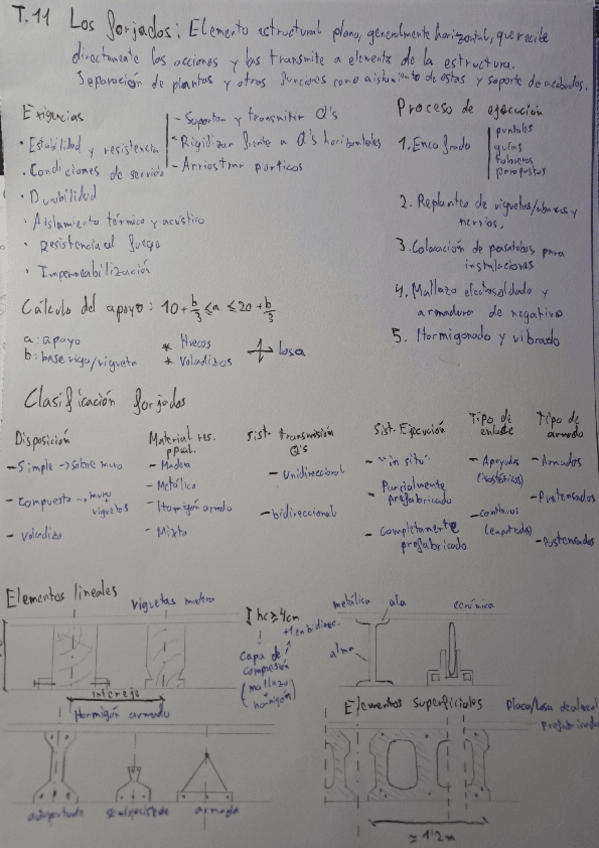 T.11 Los forjados: Elemento estructural plano, generalmente horizontal, que recibe
directamente las acciones y las transmite a elementos de la estructura.
Separación de plantas y otras funciones como aislamiento de estas y soporte de acabados.
Exigencias
• Estabilidad y resistencia
- Soportar y transmitir Q's
- Rigidizar frente a Q's horizontales
- Arriostrar pórticos
• Condiciones de servicio
• Durabilidad
• Aislamiento térmico y acústico
• Resistencia al fuego
• Impermeabilización
Proceso de ejecución
1. Encofrado
puntales
guías
tableros
2. Replanteo de viguetas/ábacos y
nervios.
3. Colocación de pasatubos para
instalaciones
4. Mallazo electrosoldado y
armadura de negativo
5. Hormigonado y vibrado
Cálculo del apoyo: 10 + b/3 ≤ a ≤ 20 + b/3
a: apoyo
b: base viga/vigueta
* Huecos
* Voladizos
losa
Clasificación forjados
Disposición
- Simple → sobre muro
- Compuesto → muro
viguetas
- Voladizo
Material res.
ppal.
- Madera
- Metálico
- Hormigón armado
- Mixto
Sist. transmisión
Q's
- Unidireccional
- bidireccional
Sist. Ejecución
- "in situ"
- Parcialmente
prefabricado
- Completamente
prefabricado
Tipo de
enlace
- Apoyados
(isostáticos)
- continuos
(empotrados)
Tipo de
armado
- Armados
- Pretensados
- Postensados
Elementos lineales
viguetas madera
hc ≥ 4cm
+1 en bidirec.
Capa de
compresión
(mallazo
+
hormigón)
intereje
Hormigón armado
autoportante
semirresistente
armada
metálica
ala
alma
cerámica
Elementos superficiales
Placa/losa alveolar
prefabricada
≃ 1'2m